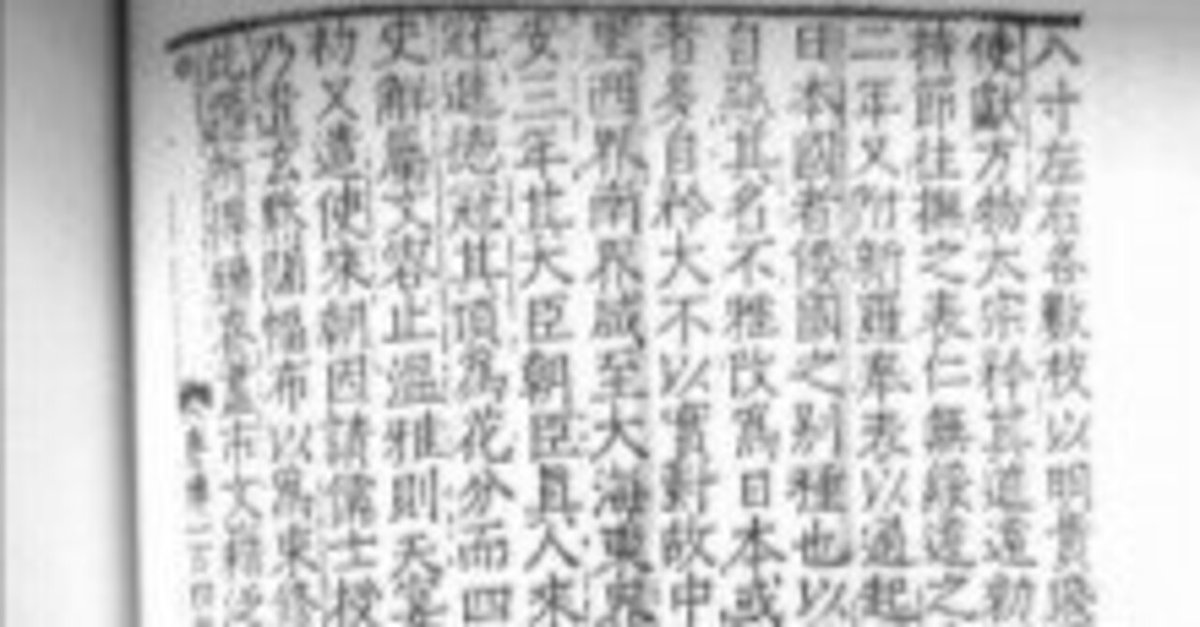 八寸左右各數枚以明貴賤
使獻方物太宗矜其道遠勅
持節往撫之表仁無綏遠之
二年又附新羅奉表以通起
日本國者倭國之別種也以
自惡其名不雅改爲日本或
者多自矜大不以實對故中
里西界南界咸至大海東界
安三年其大臣朝臣真人來
冠進德冠其頂爲花分而四
史解屬文容止溫雅則天宴
初又遣使來朝因請儒士授
乃遺玄默闊幅布以爲束修
此題所得錫賚盡市文籍泛